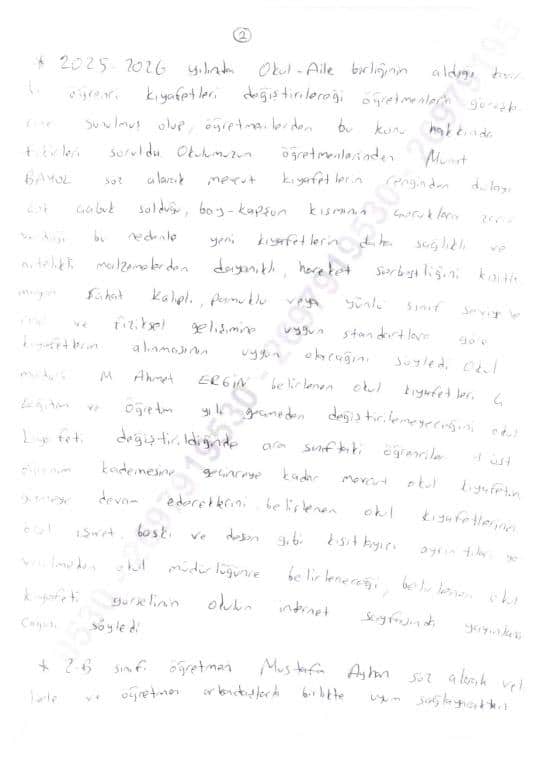 2
* 2025-2026 yılında Okul-Aile birliğinin aldığı karar
öğrenci kıyafetleri değiştirileceği öğretmenlerin
sunulmuş olup, öğretmenlerden bu konu hakkında
fikirleri soruldu. Okulumuzun öğretmenlerinden Murat
söz alarak mevcut kıyafetlerin renginden dolayı
çok çabuk solduğu, boy-kapşon kısmının çocuklara zarar
verdiği bu nedenle yeni kıyafetlerin daha sağlıklı ve
nitelikli malzemelerden dayanıklı, hareket serbestliğini kısıtla
mayan rahat kalıpl, pamuklu veya yünlü sınıf seviye
ve fiziksel gelişimine uygun standartlara göre
kıyafetlerin alınmasının uygun olacağını söyledi. Okul
müdürü M Ahmet ERGİN belirlenen okul kıyafetleri 4
Eğitim ve öğretim yılı geçmeden değiştirilemeyeceğini okul
kıyafeti değiştirildiğinde ara sınıftaki öğrenciler üst
öğrenim kademesine geçinceye kadar mevcut okul kıyafetini
giymeye devam edeceklerini, belirlenen okul kıyafetlerinin
özel işaret, baskı ve desen gibi kısıtlayıcı ayrıntılara ye
verilmeden okul müdürlüğünce belirleneceği, belirlenen okul
kıyafeti görselinin okulun internet sayfasında yayınlana
cağını söyledi
* 2-B sınıf öğretmen Mustafa söz alarak vel
ilerle ve öğretmen arkadaşlarla birlikte uyum sağlayacaktır
26979919530 - 26979919530 - 269799195